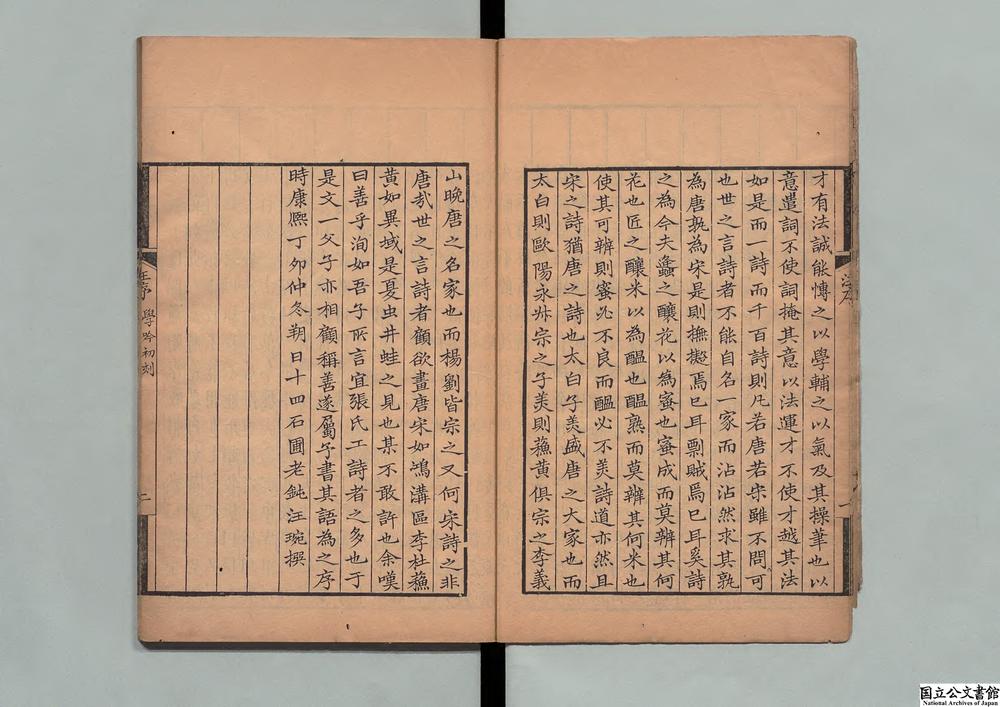 才有法誠能慱之以學輔之以氣及其操筆也以
意遣詞不使詞掩其意以法運才不使才越其法
如是而一詩而千百詩則凡若唐若宋雖不問可
也世之言詩者不能自名一家而沾沾然求其孰
為唐孰為宋是則撫擬焉已耳剽賊焉已耳奚詩
之為今夫蠭之釀花以為蜜也蜜成而莫辨其何
花也匠之釀米以為醖也醖熟而莫辨其何米也
使其可辨則蜜必不良而醖必不美詩道亦然且
宋之詩猶唐之詩也太白子美盛唐之大家也而
太白則歐陽永叔宗之子美則蘇黄俱宗之李義
山晚唐之名家也而楊劉皆宗之又何宋詩之非
唐㢤世之言詩者顧欲畫唐宋如鴻溝區李杜蘇
黄如異域是夏虫井蛙之見也某不敢許也余嘆
曰善乎洵如吾子所言宜張氏工詩者之多也于
是文一父子亦相顧稱善遂屬予書其語為之序
時康熙丁夘仲冬朔日十四石圃老鈍汪琬撰
汪序 學吟初刻
二
国立公文書館
National Archives of Japan